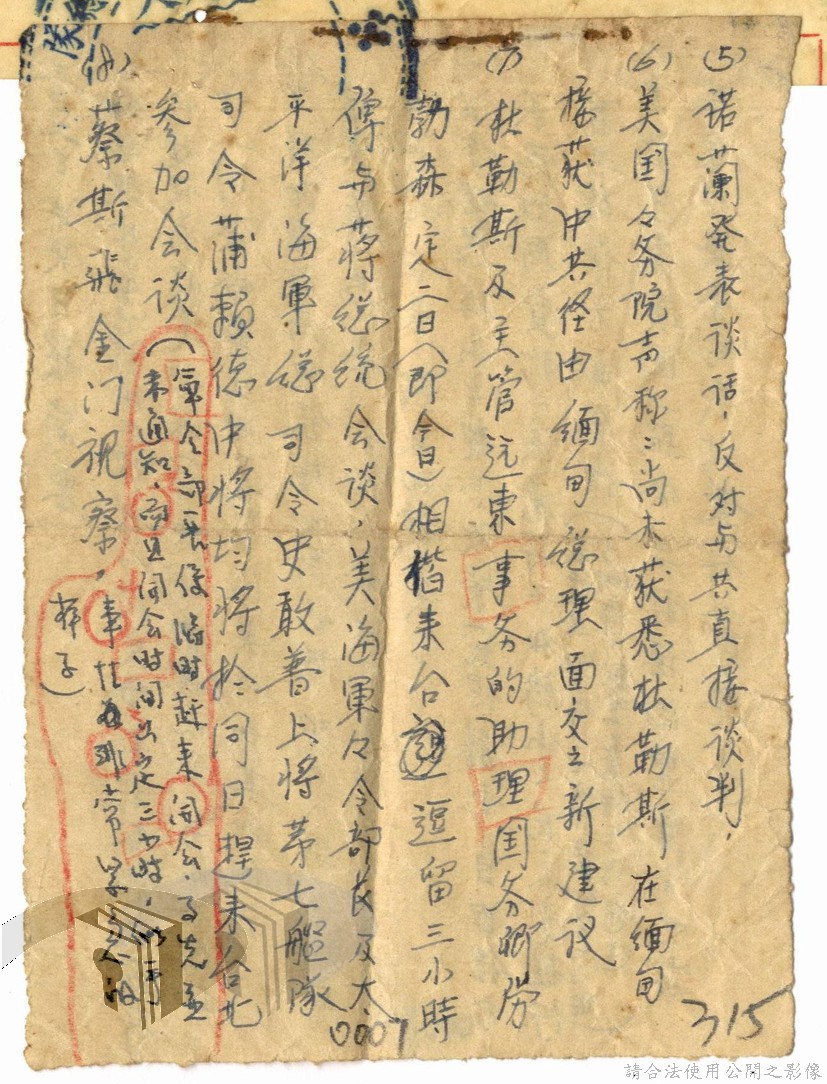 (5) 诺蘭発表谈话，反对与共直接谈判，
(6) 美国々务院声称：尚未获悉杜勒斯在缅甸
接获中共经由缅甸總理面交之新建议
(7) 杜勒斯及主管远東事务的助理国务卿劳
勃森定二日(即今日)相楷来台逗留三小時
傳与蒋總統会谈，美海軍々令部長及太
平洋海軍總司令史敢普上將第七艦隊
司令蒲賴德中將均將於同日趕来台北
参加会谈(軍令部長係临时赶来開会，事先並
未通知，而且開会时间只定三小时，似乎
(8) 蔡斯飛金门視察，事情非常緊急
样子)
315
0007
請合法使用公開之影像